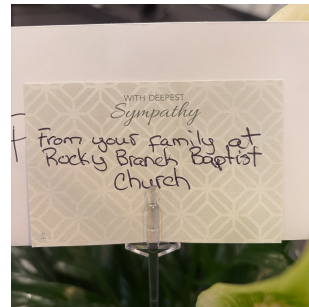 WITH DEEPEST
Sympathy
From your family at
Rocky Branch Baptist
Church